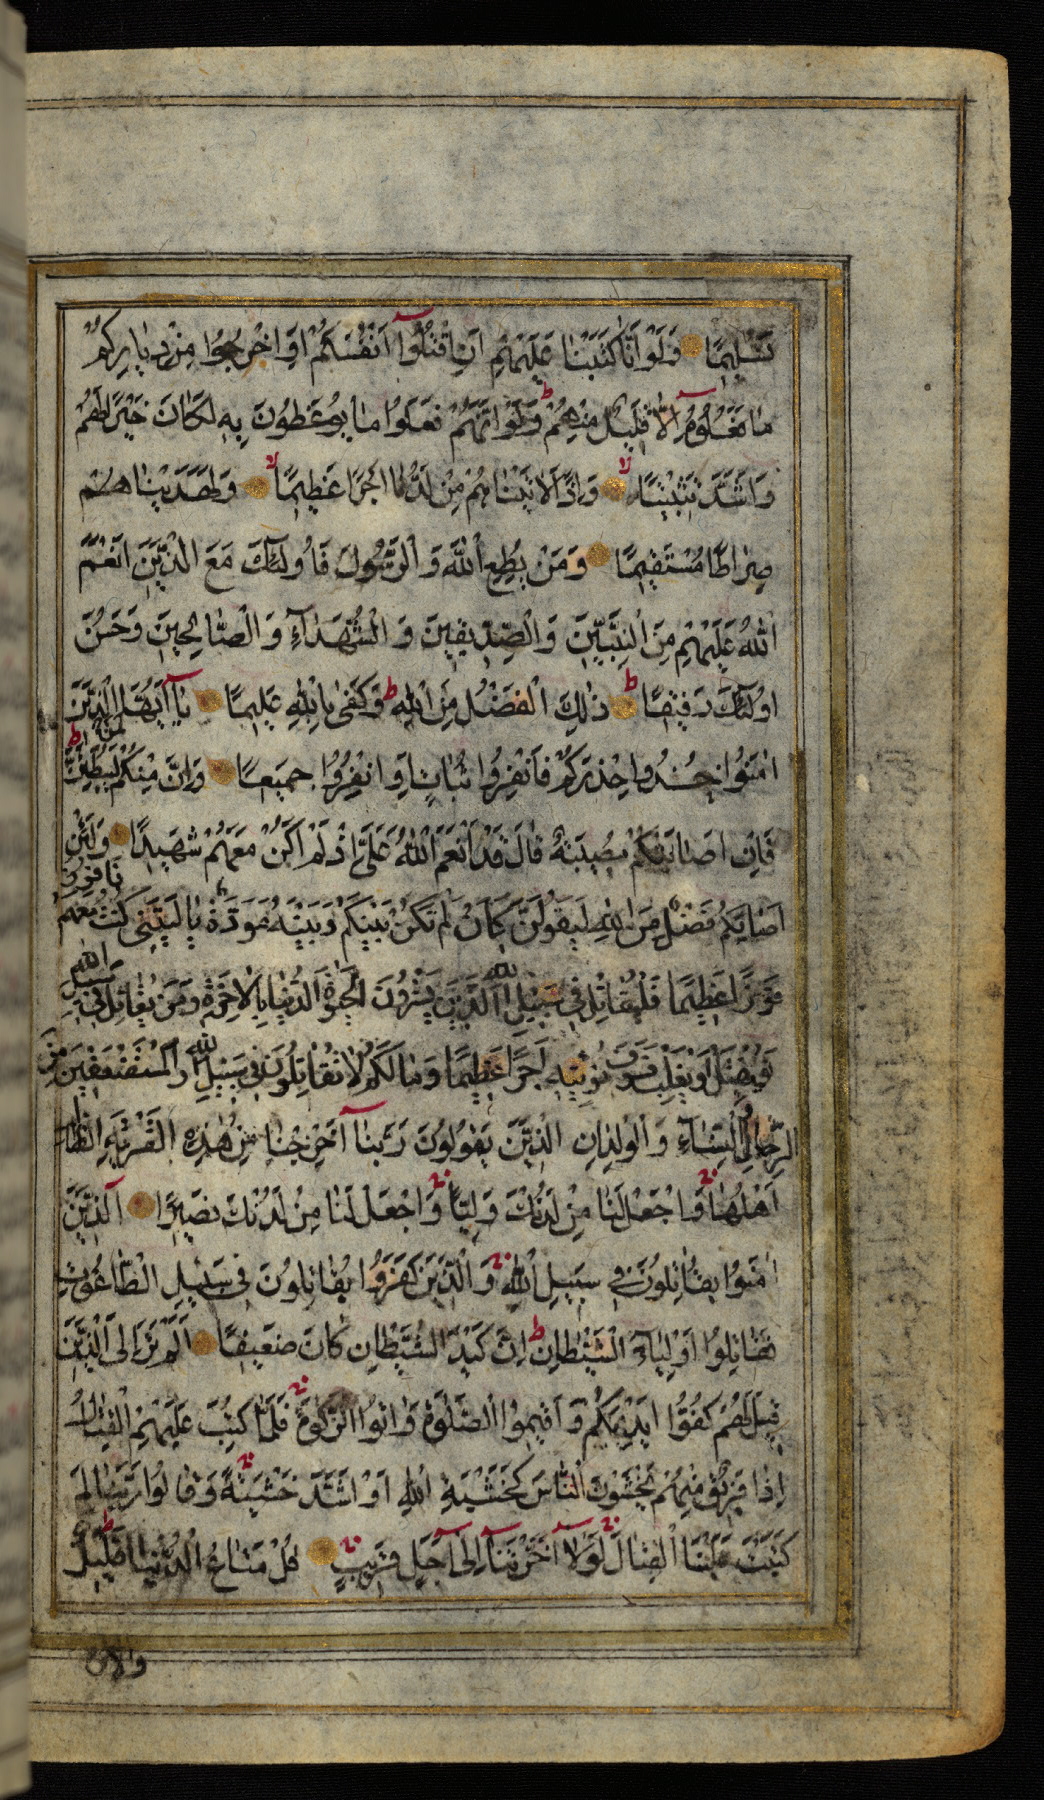 تَسْلِيمًا وَلَوْ أَنَّا كَتَبْنَا عَلَيْهِمْ أَنِ اقْتُلُوا أَنْفُسَكُمْ أَوِ اخْرُجُوا مِنْ دِيَارِكُمْ
مَا فَعَلُوهُ إِلَّا قَلِيلٌ مِنْهُمْ ط وَلَوْ أَنَّهُمْ فَعَلُوا مَا يُوعَظُونَ بِهِ لَكَانَ خَيْرًا لَهُمْ
وَأَشَدَّ تَثْبِيتًا لا وَإِذًا لَآتَيْنَاهُمْ مِنْ لَدُنَّا أَجْرًا عَظِيمًا لا وَلَهَدَيْنَاهُمْ
صِرَاطًا مُسْتَقِيمًا وَمَنْ يُطِعِ اللَّهَ وَالرَّسُولَ فَأُولَئِكَ مَعَ الَّذِينَ أَنْعَمَ
اللَّهُ عَلَيْهِمْ مِنَ النَّبِيِّينَ وَالصِّدِّيقِينَ وَالشُّهَدَاءِ وَالصَّالِحِينَ وَحَسُنَ
أُولَئِكَ رَفِيقًا ط ذَلِكَ الْفَضْلُ مِنَ اللَّهِ ط وَكَفَى بِاللَّهِ عَلِيمًا يَا أَيُّهَا الَّذِينَ
آمَنُوا خُذُوا حِذْرَكُمْ فَانْفِرُوا ثُبَاتٍ أَوِ انْفِرُوا جَمِيعًا وَإِنَّ مِنْكُمْ لَمَنْ لَيُبَطِّئَنَّ ط
فَإِنْ أَصَابَتْكُمْ مُصِيبَةٌ قَالَ قَدْ أَنْعَمَ اللَّهُ عَلَيَّ إِذْ لَمْ أَكُنْ مَعَهُمْ شَهِيدًا وَلَئِنْ
أَصَابَكُمْ فَضْلٌ مِنَ اللَّهِ لَيَقُولَنَّ كَأَنْ لَمْ تَكُنْ بَيْنَكُمْ وَبَيْنَهُ مَوَدَّةٌ يَا لَيْتَنِي كُنْتُ مَعَهُمْ فَأَفُوزَ
فَوْزًا عَظِيمًا فَلْيُقَاتِلْ فِي سَبِيلِ اللَّهِ الَّذِينَ يَشْرُونَ الْحَيٰوةَ الدُّنْيَا بِالْآخِرَةِ وَمَنْ يُقَاتِلْ فِي سَبِيلِ اللَّهِ
فَيُقْتَلْ أَوْ يَغْلِبْ فَسَوْفَ نُؤْتِيهِ أَجْرًا عَظِيمًا وَمَا لَكُمْ لَا تُقَاتِلُونَ فِي سَبِيلِ اللَّهِ وَالْمُسْتَضْعَفِينَ مِنَ
الرِّجَالِ وَالنِّسَاءِ وَالْوِلْدَانِ الَّذِينَ يَقُولُونَ رَبَّنَا أَخْرِجْنَا مِنْ هَذِهِ الْقَرْيَةِ الظَّالِمِ
أَهْلُهَا وَاجْعَلْ لَنَا مِنْ لَدُنْكَ وَلِيًّا وَاجْعَلْ لَنَا مِنْ لَدُنْكَ نَصِيرًا الَّذِينَ
آمَنُوا يُقَاتِلُونَ فِي سَبِيلِ اللَّهِ وَالَّذِينَ كَفَرُوا يُقَاتِلُونَ فِي سَبِيلِ الطَّاغُوتِ
فَقَاتِلُوا أَوْلِيَاءَ الشَّيْطَانِ ط إِنَّ كَيْدَ الشَّيْطَانِ كَانَ ضَعِيفًا أَلَمْ تَرَ إِلَى الَّذِينَ
قِيلَ لَهُمْ كُفُّوا أَيْدِيَكُمْ وَأَقِيمُوا الصَّلٰوةَ وَآتُوا الزَّكٰوةَ فَلَمَّا كُتِبَ عَلَيْهِمُ الْقِتَالُ
إِذَا فَرِيقٌ مِنْهُمْ يَخْشَوْنَ النَّاسَ كَخَشْيَةِ اللَّهِ أَوْ أَشَدَّ خَشْيَةً وَقَالُوا رَبَّنَا لِمَ
كَتَبْتَ عَلَيْنَا الْقِتَالَ لَوْلَا أَخَّرْتَنَا إِلَى أَجَلٍ قَرِيبٍ قُلْ مَتَاعُ الدُّنْيَا قَلِيلٌ ط
والآخ